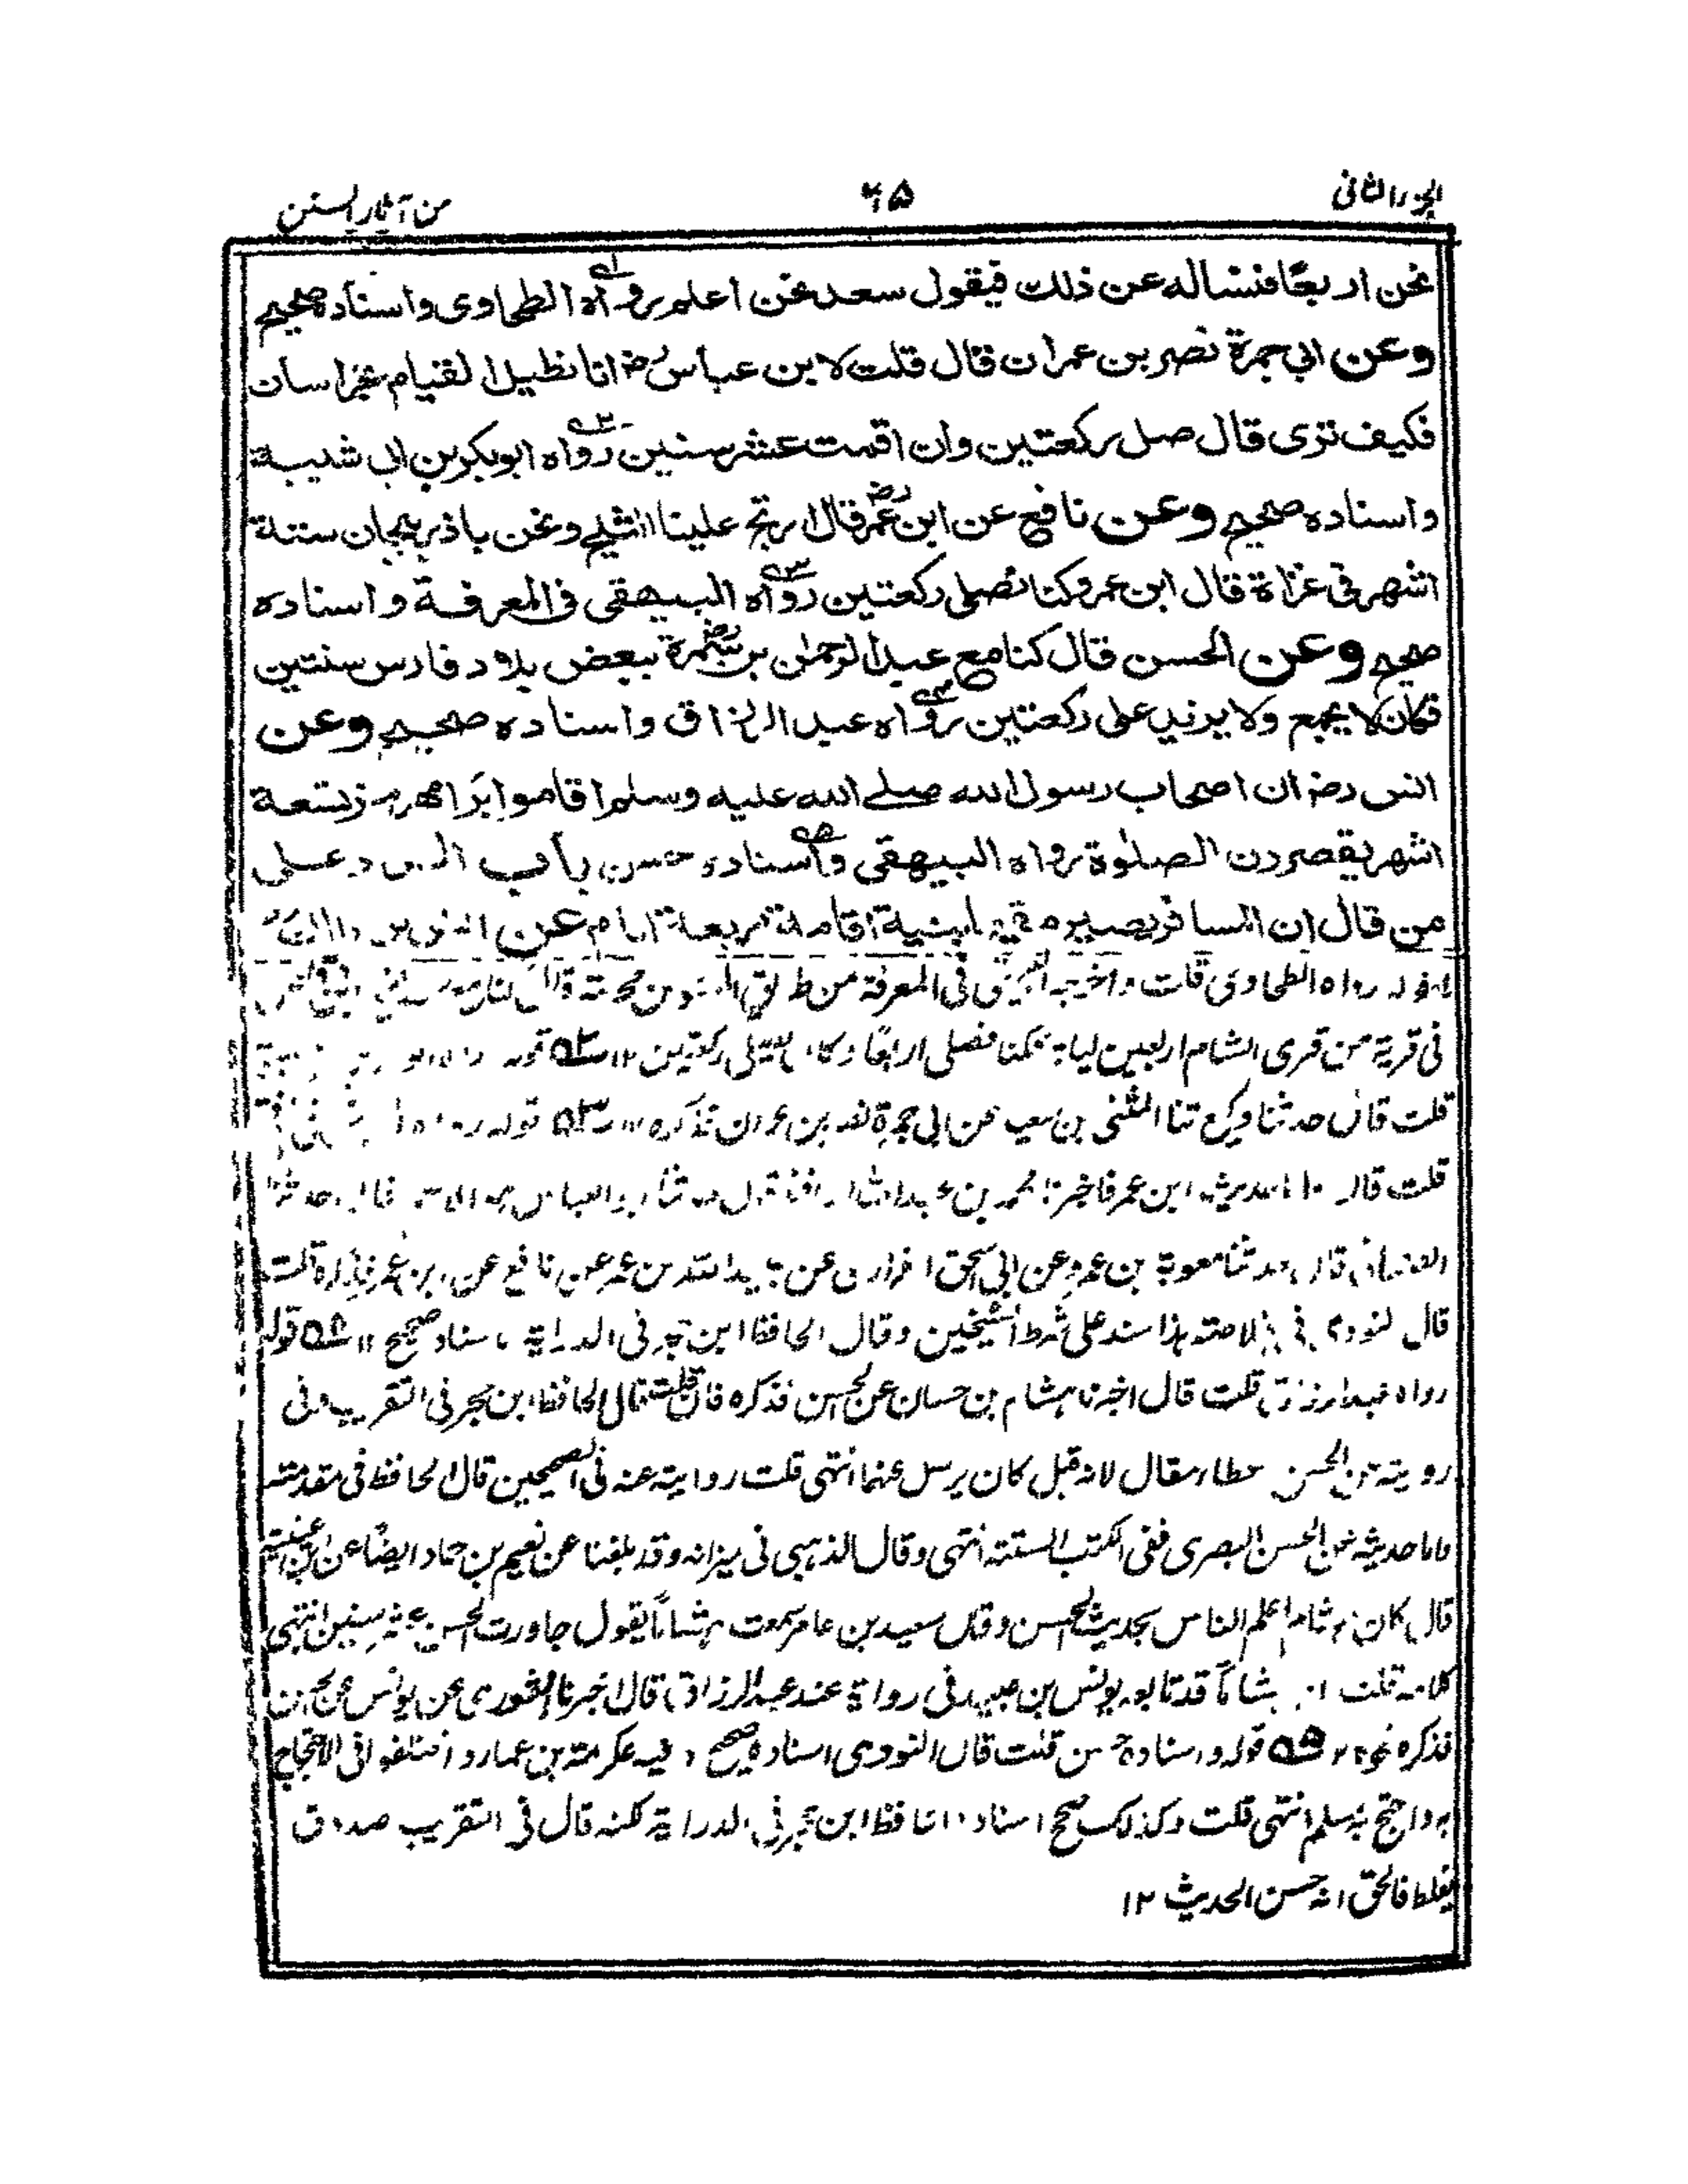 الجزء الثانى
٦٥
من آثار السنن
نحن اربعا فنسأله عن ذلك فيقول سعد نحن اعلم رواه الطحاوى واسناده صحيح
وعن ابي جمرة نصر بن عمران قال قلت لابن عباس رض انا نطيل القيام بخراسان
فكيف ترى قال صل ركعتين وان اقمت عشر سنين رواه ابوبكر بن ابى شيبة
واسناده صحيح وعن نافع عن ابن عمر رض قال ارتج علينا الثلج ونحن باذربيجان ستة
اشهر فى غزاة قال ابن عمر وكنا نصلى ركعتين رواه البيهقى فى المعرفة واسناده
صحيح وعن الحسن قال كنا مع عبد الرحمن بن سمرة رض ببعض بلاد فارس سنتين
فكان لا يجمع ولا يزيد على ركعتين رواه عبد الرزاق واسناده صحيح وعن
انس رض ان اصحاب رسول الله صلے الله عليه وسلم اقاموا برامهرمز تسعة
اشهر يقصرون الصلوة رواه البيهقى واسناده حسن باب الرد على
من قال ان المسافر يصير مقيما بنية اقامة اربعة ايام عن
قوله رواه الطحاوى قلت واخرجه البيهقى فى المعرفة من طريق
فى قرية من قرى الشام اربعين ليلة فكنا نصلى اربعا وكان يصلى ركعتين ١٢ ۲ قوله
قلت قال حدثنا وكيع ثنا المثنى بن سعيد عن ابى جمرة نصر بن عمران فذكره ١٢ ۳ قوله رواه
قلت قال اما حديث ابن عمر فاخبرنا محمد بن عبد الله الحافظ قال حدثنا ابو العباس قال حدثنا
قال حدثنا معوية بن عمرو عن ابى اسحق الفزارى عن عبيد الله بن عمر عن نافع عن ابن عمر فذكره قلت
قال النووى فى الخلاصة هذا سند على شرط الشيخين وقال الحافظ ابن حجر فى الدراية باسناد صحيح ١٢ ۴ قوله
رواه عبد الرزاق قلت قال اخبرنا هشام بن حسان عن الحسن فذكره فان قلت قال الحافظ ابن حجر فى التقريب وفى
روايته عن الحسن وعطاء مقال لانه قيل كان يرسل عنهما انتهى قلت روايته عنه فى الصحيحين قال الحافظ فى مقدمته
واما حديثه عن الحسن البصرى ففى الكتب الستة انتهى وقال الذهبى فى ميزانه وقد بلغنا عن نعيم بن حماد ايضا عن ابن عيينة
قال كان هشام اعلم الناس بحديث الحسن وقال سعيد بن عامر سمعت هشاما يقول جاورت الحسن عشر سنين انتهى
كلامه قلت ان هشاما قد تابعه يونس بن عبيد فى رواية عند عبد الرزاق قال اخبرنا الثورى عن يونس عن الحسن
فذكره نحوه ١٢ ۵ قوله واسناده حسن قلت قال النووى اسناده صحيح وفيه عكرمة بن عمار واختلفوا فى الاحتجاج
به واحتج به مسلم انتهى قلت وكذلك صحح اسناده الحافظ ابن حجر فى الدراية لكنه قال فى التقريب صدوق
يغلط فالحق انه حسن الحديث ١٢